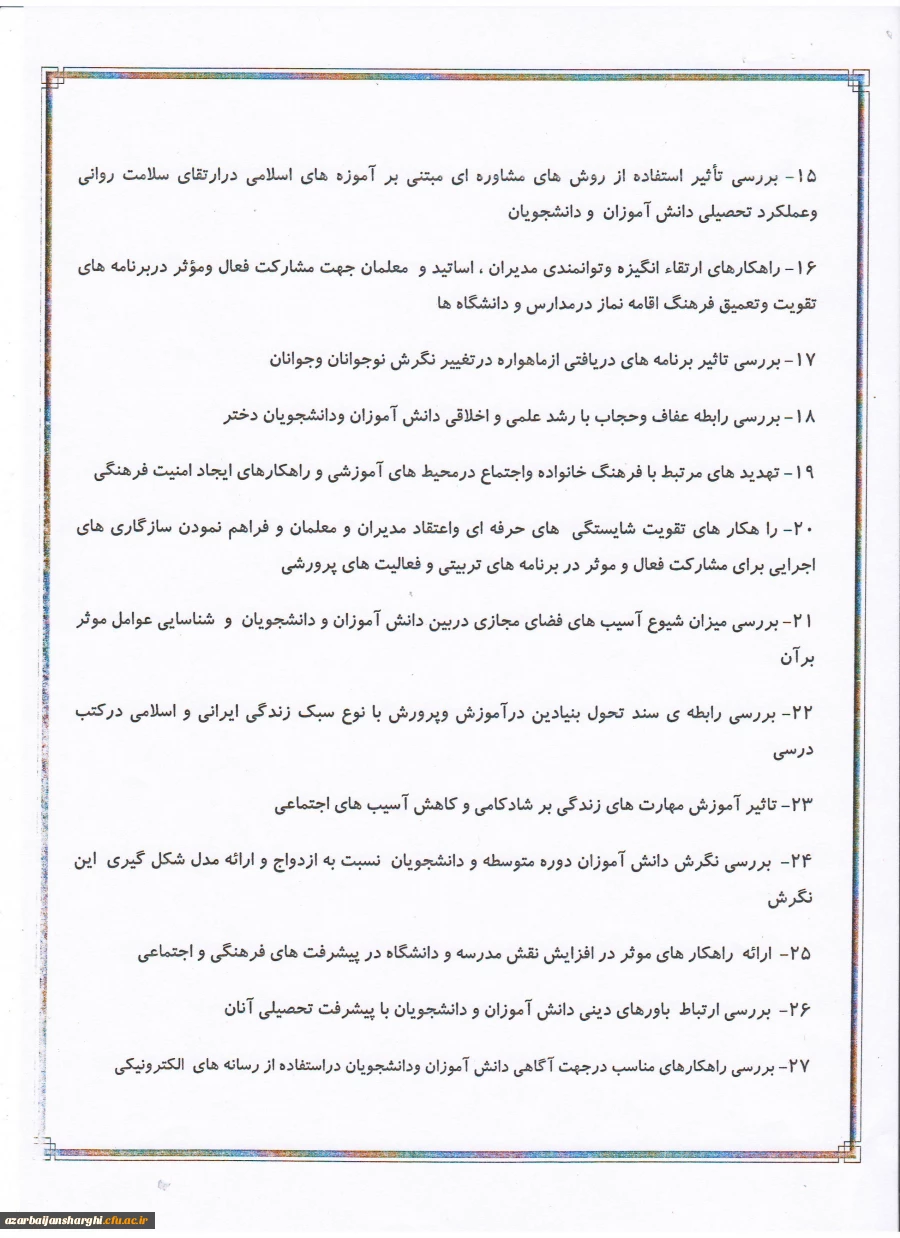 ۱۵- بررسی تأثیر استفاده از روش های مشاوره ای مبتنی بر آموزه های اسلامی درارتقای سلامت روانی
وعملکرد تحصیلی دانش آموزان و دانشجویان
۱۶- راهکارهای ارتقاء انگیزه وتوانمندی مدیران ، اساتید و معلمان جهت مشارکت فعال ومؤثر دربرنامه های
تقویت وتعمیق فرهنگ اقامه نماز درمدارس و دانشگاه ها
۱۷- بررسی تاثیر برنامه های دریافتی ازماهواره درتغییر نگرش نوجوانان وجوانان
۱۸- بررسی رابطه عفاف وحجاب با رشد علمی و اخلاقی دانش آموزان ودانشجویان دختر
۱۹- تهدید های مرتبط با فرهنگ خانواده واجتماع درمحیط های آموزشی و راهکارهای ایجاد امنیت فرهنگی
۲۰- را هکار های تقویت شایستگی های حرفه ای واعتقاد مدیران و معلمان و فراهم نمودن سازگاری های
اجرایی برای مشارکت فعال و موثر در برنامه های تربیتی و فعالیت های پرورشی
۲۱- بررسی میزان شیوع آسیب های فضای مجازی دربین دانش آموزان و دانشجویان و شناسایی عوامل موثر
برآن
۲۲- بررسی رابطه ی سند تحول بنیادین درآموزش وپرورش با نوع سبک زندگی ایرانی و اسلامی درکتب
درسی
۲۳- تاثیر آموزش مهارت های زندگی بر شادکامی و کاهش آسیب های اجتماعی
۲۴- بررسی نگرش دانش آموزان دوره متوسطه و دانشجویان نسبت به ازدواج و ارائه مدل شکل گیری این
نگرش
۲۵- ارائه راهکار های موثر در افزایش نقش مدرسه و دانشگاه در پیشرفت های فرهنگی و اجتماعی
۲۶- بررسی ارتباط باورهای دینی دانش آموزان و دانشجویان با پیشرفت تحصیلی آنان
۲۷- بررسی راهکارهای مناسب درجهت آگاهی دانش آموزان ودانشجویان دراستفاده از رسانه های الکترونیکی
azarbaijansharghi.cfu.ac.ir